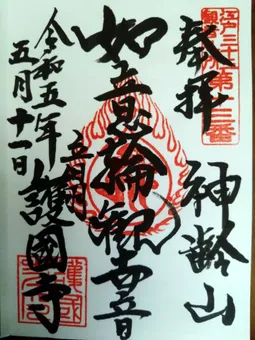 江戸三十三
観音札所第十三番
奉拝
神齢山
如意輪観世音
音羽
護國寺
令和五年
五月十一日